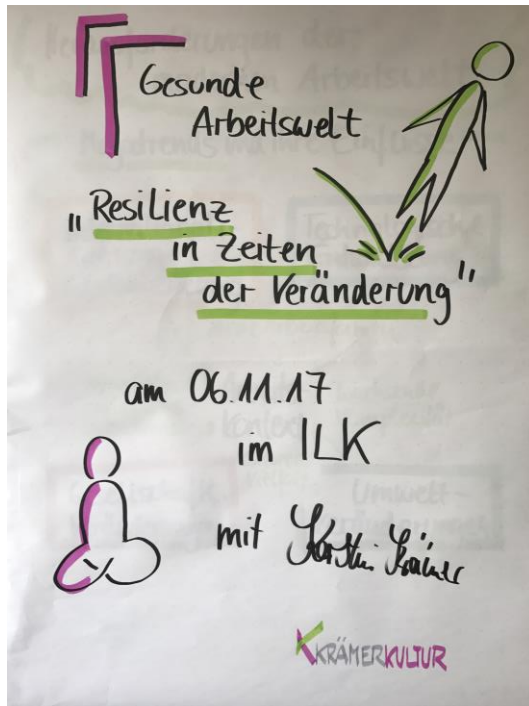 Gesunde
Arbeitswelt
"Resilienz
in Zeiten
der Veränderung"
am 06.11.17
im ILK
mit Kerstin Krämer
KRÄMERKULTUR